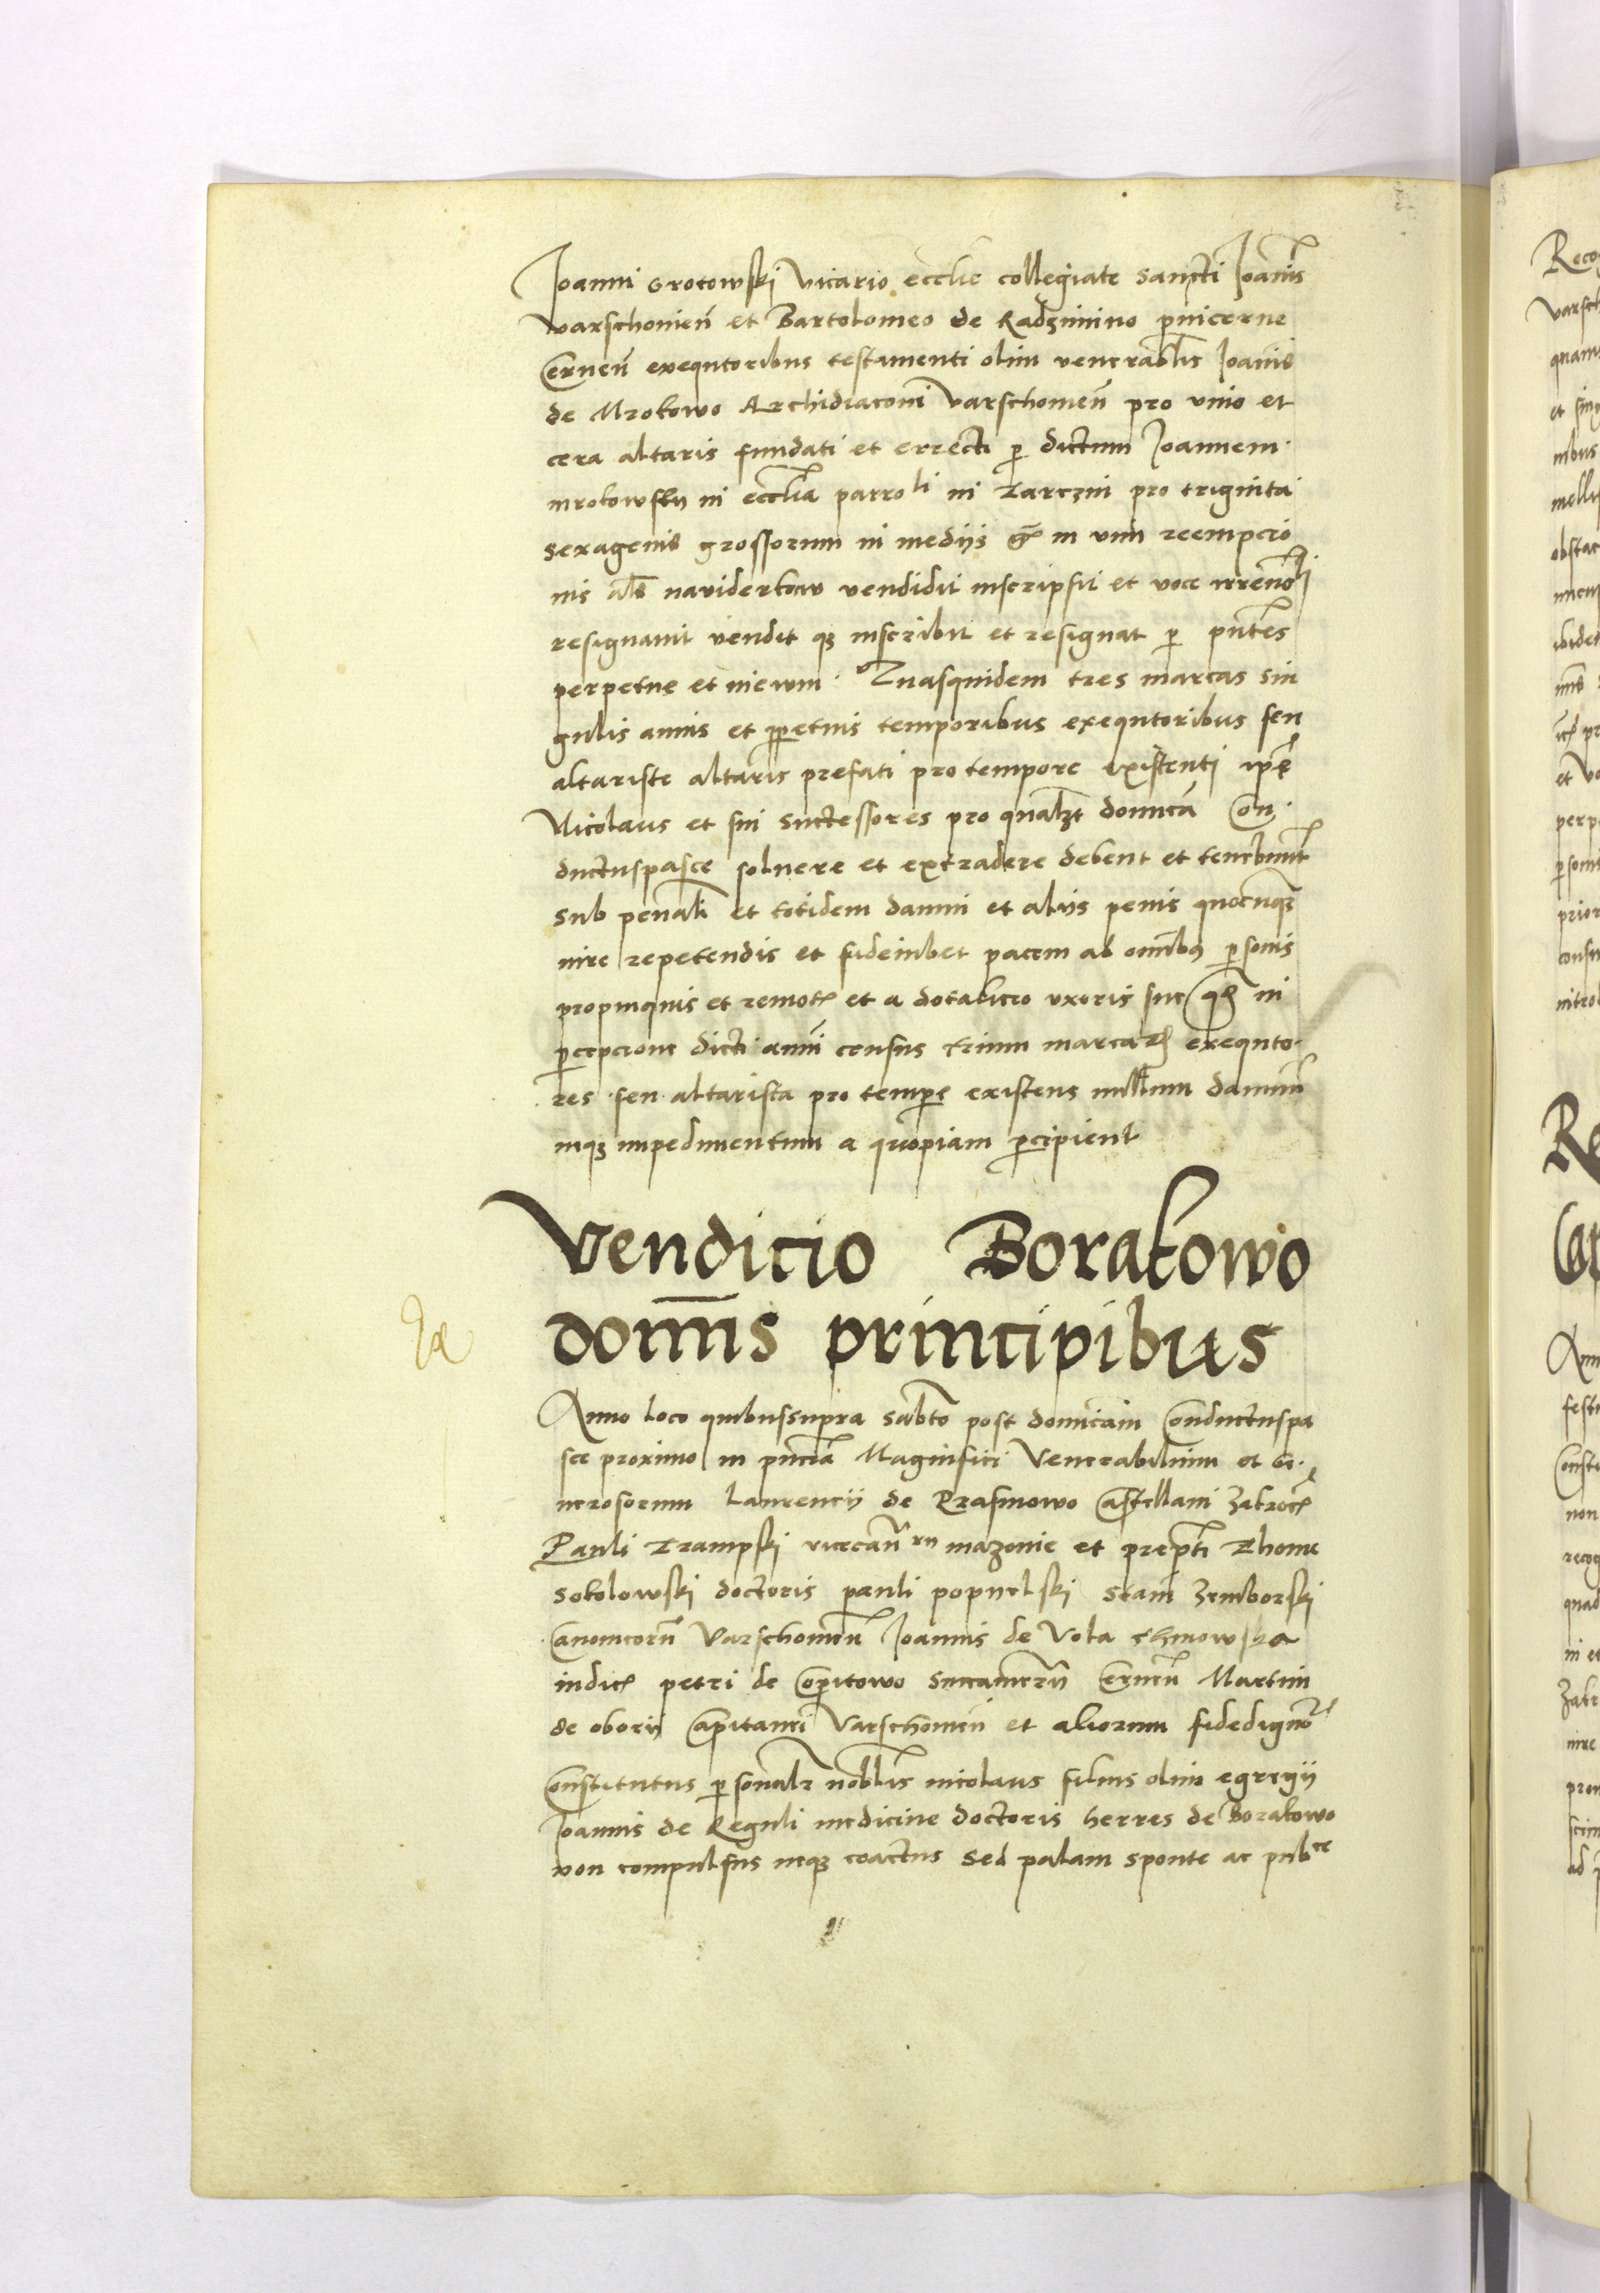 Joanni Grotowski vicario ecclie collegiate sancti Joannis
varschouien et Bartolomeo de Radzimino pincerne
Cernen exequtoribus testamenti olim venerablis Joanis
de Mrokowo Archidiaconi varschouien pro vino et
cera altaris fundati et errecti p dictum Joannem
mrokowsky in ecclia parroli in Tarczin pro triginta
sexagenis grossorum in mediis gr in vim reempcio
nis als nawiderkow vendidit inscripsit et voce
resignauit vendit qz inscribit et resignat p pntes
perpetue et in ewm Quasquidem tres marcas sin
gulis annis et ppetuis temporibus exequtoribus seu
altariste altaris prefati pro tempore existenti ipse
Nicolaus et sui successores pro qualzt domica Con
ductuspasce soluere et extradere debent et tenebunt
sub penali et totidem damni et aliis penis quocunqz
iure repetendis et fideiubet pacem ab omibus psonis
propinquis et remot et a dotalicio vxoris sue qd in
pcepcione dicti anni census trium marcar exequto
res seu altarista pro tempore existens nullum damnum
neqz impedimentum a quopiam pcipient
Vendicio Borakowo
dominis principibus
Anno loco quibussupra sabto post domicam Conductuspa
sce proximo in pncia Magnifici Venerabilium et Ge
nerosorum Laurencii de Prasmowo Castellani Zakroc
Pauli Trampski vicecan mazouie et prepti Thome
Sokolowski doctoris pauli popyelski Stani Zemborski
Canonicoru Varschouien Joannis de Vola chinowska
iudic petri de Copitowo succamerarii Cernen Martini
de obory Capitanei Varschouien et aliorum fidedignor
Constitutus psonalr noblis nicolaus filius olim egregii
Joannis de Reguli medicine doctoris herres de Borakowo
non compulsus neqz coactus sed palam sponte ac publce